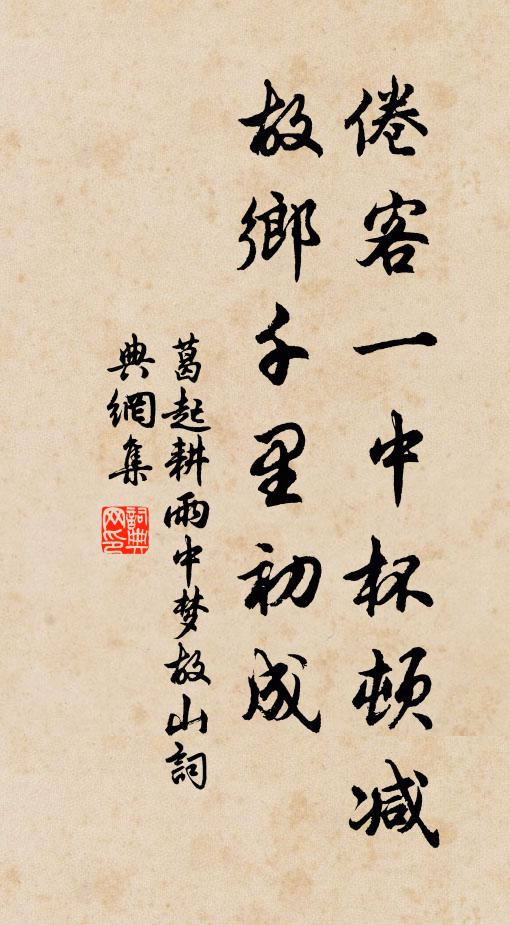 倦客一中杯頓減
故鄉千里初成
葛起耕雨中梦故山詞
典網集
詞典
网印